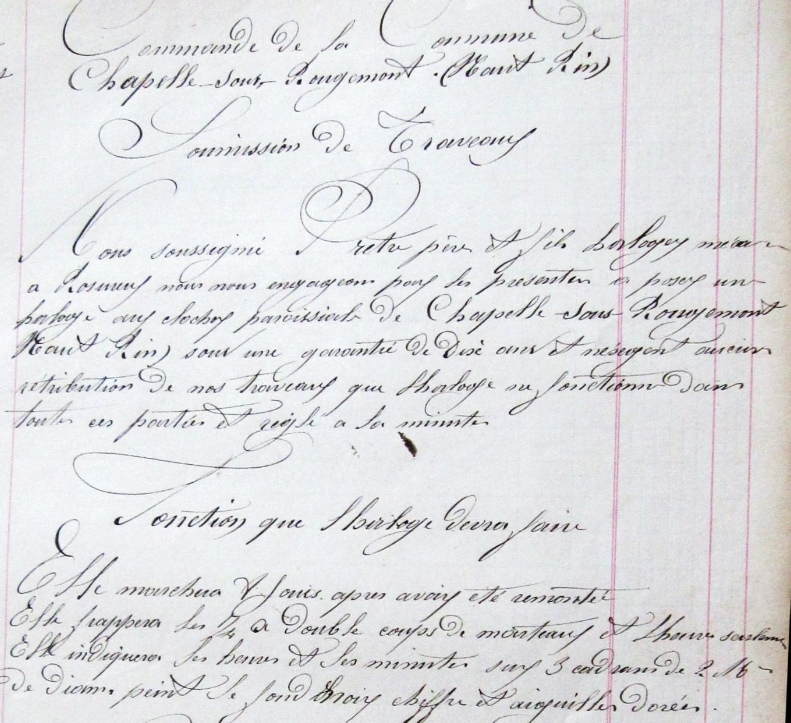 Commande de la Commune de
Chapelle-sous-Rougemont (Haut Rin)
Soumission de Traveaux
Nous soussigné Pretre père et fils horloger mécan
a Rosureux nous nous engageons par les presentes a poser un
horloge aux clocher paroissiale de Chapelle-sous-Rougemont
Haut Rin) sous une garantie de dixe ans et n'exigent aucun
retribution de nos traveaux que l'horloge ne fonctionne dans
toutes ces parties et reglé a la minute
Fonction que l'horloge devra faire
Elle marchera 8 jours apres avoir été remontée
Elle frappera les 1/4 a double coups de marteaux et l'heure seulemen
Elle indiquera les heures et les minutes sur 3 cadrans de 2 M
de diam. peint le fond noir chiffre et aiguilles dorées.